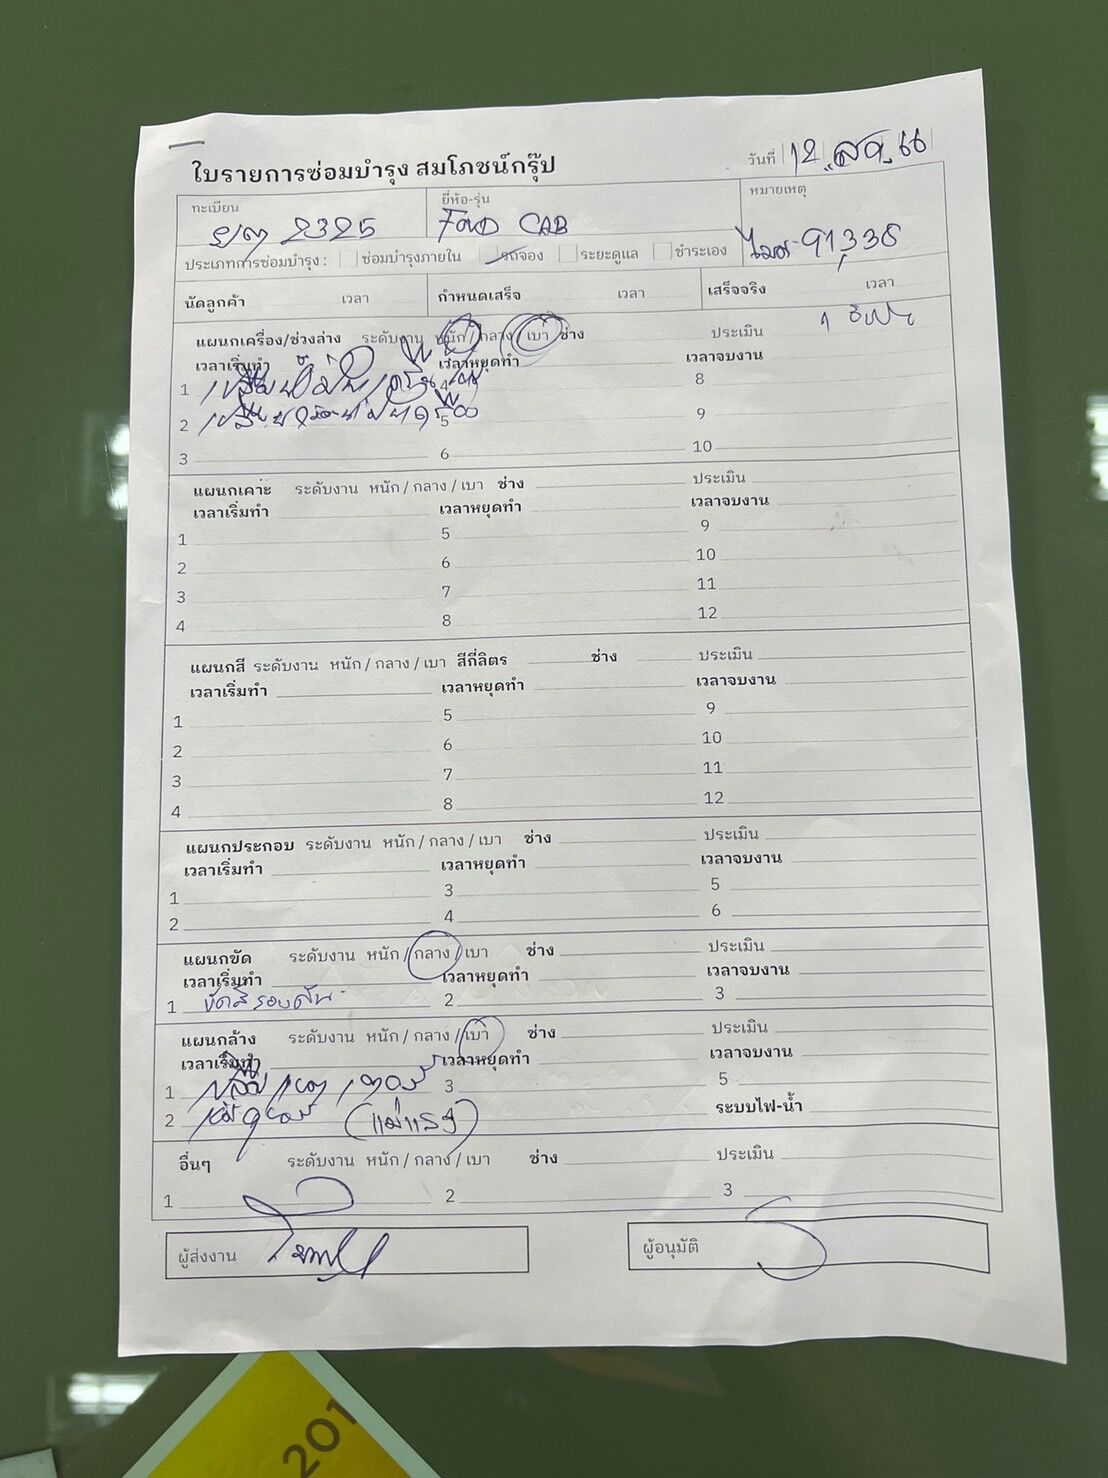 ใบรายการซ่อมบำรุง สมโภชน์กรุ๊ป
วันที่ 12 สค. 66
ทะเบียน ยี่ห้อ-รุ่น หมายเหตุ
2325 FORD CAB
ไมล์ 91,338
ประเภทการซ่อมบำรุง : ซ่อมบำรุงภายใน รถจอง ระยะดูแล ชำระเอง
นัดลูกค้า เวลา กำหนดเสร็จ เวลา เสร็จจริง เวลา
แผนกเครื่อง/ช่วงล่าง ระดับงาน หนัก / กลาง / เบา ช่าง ประเมิน
เวลาเริ่มทำ เวลาหยุดทำ เวลาจบงาน
1 เปลี่ยนน้ำมันเครื่อง 4 8
2 5 9
3 6 10
แผนกเคาะ ระดับงาน หนัก / กลาง / เบา ช่าง ประเมิน
เวลาเริ่มทำ เวลาหยุดทำ เวลาจบงาน
1 5 9
2 6 10
3 7 11
4 8 12
แผนกสี ระดับงาน หนัก / กลาง / เบา สีกี่ลิตร ช่าง ประเมิน
เวลาเริ่มทำ เวลาหยุดทำ เวลาจบงาน
1 5 9
2 6 10
3 7 11
4 8 12
แผนกประกอบ ระดับงาน หนัก / กลาง / เบา ช่าง ประเมิน
เวลาเริ่มทำ เวลาหยุดทำ เวลาจบงาน
1 3 5
2 4 6
แผนกขัด ระดับงาน หนัก / กลาง / เบา ช่าง ประเมิน
เวลาเริ่มทำ เวลาหยุดทำ เวลาจบงาน
1 ขัดสีรอบคัน 2 3
แผนกล้าง ระดับงาน หนัก / กลาง / เบา ช่าง ประเมิน
เวลาเริ่มทำ เวลาหยุดทำ เวลาจบงาน
1 3 5
2 (แม่แรง) ระบบไฟ-น้ำ
อื่นๆ ระดับงาน หนัก / กลาง / เบา ช่าง ประเมิน
1 2 3
ผู้ส่งงาน ผู้อนุมัติ
201